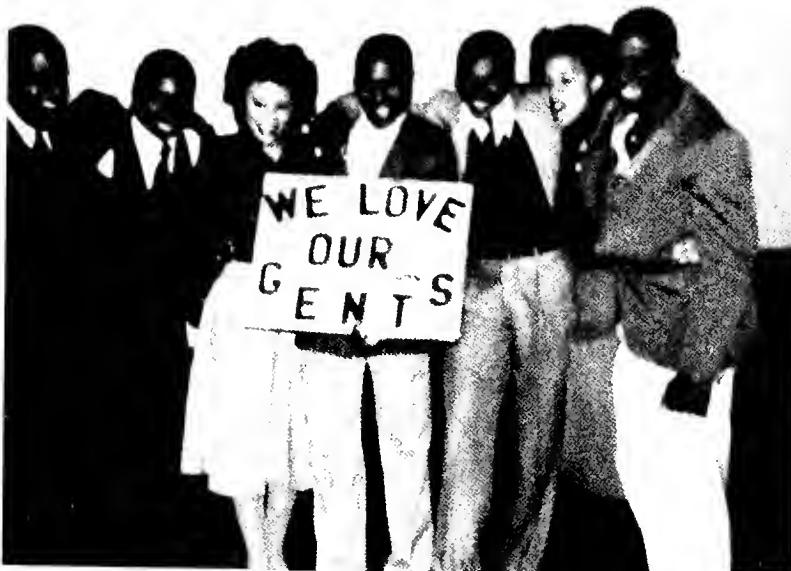 WE LOVE
OUR
GENTS